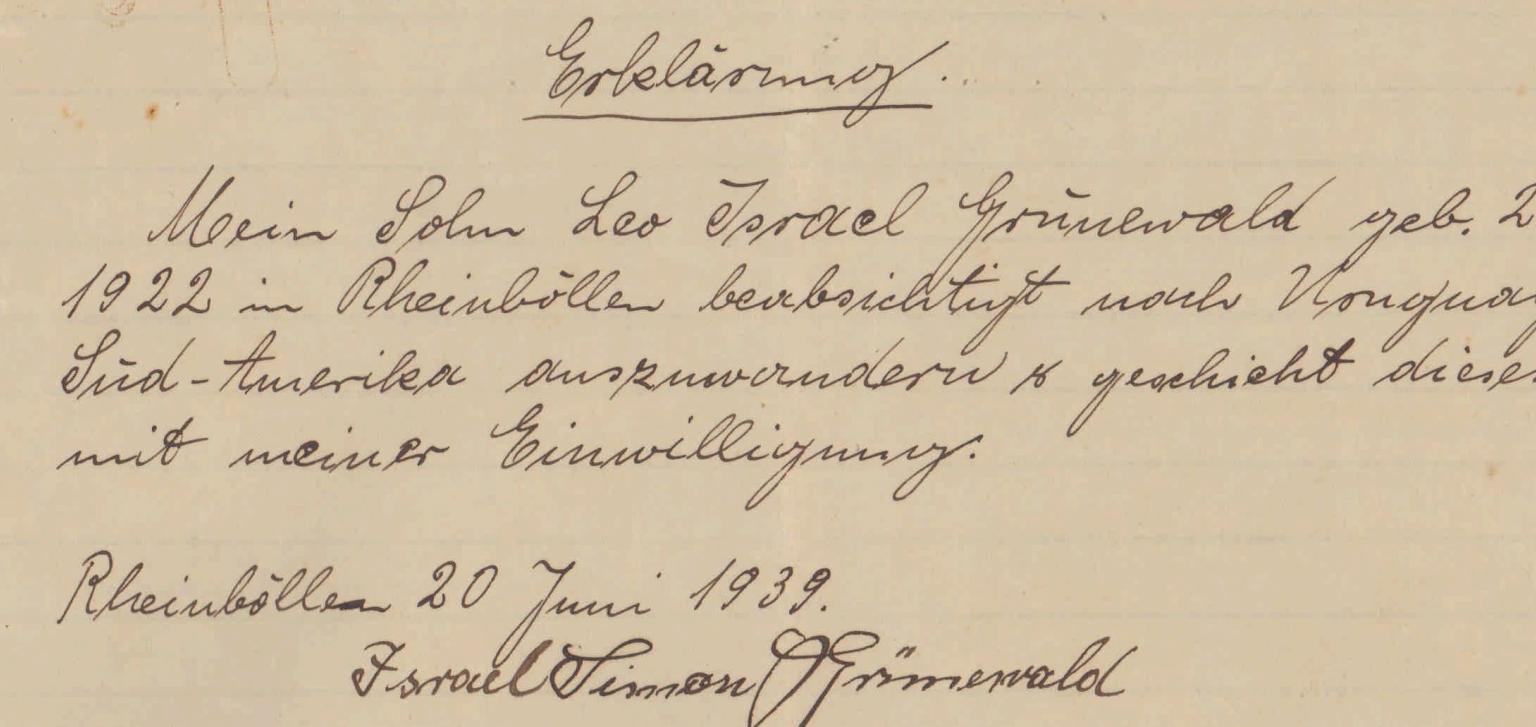 Erklärung.
Mein Sohn Leo Israel Grünewald geb. 2
1922 in Rheinböllen beabsichtigt nach Uruguay
Süd-Amerika auszuwandern & geschieht dieses
mit meiner Einwilligung.
Rheinböllen 20 Juni 1939.
Israel Simon Grünewald